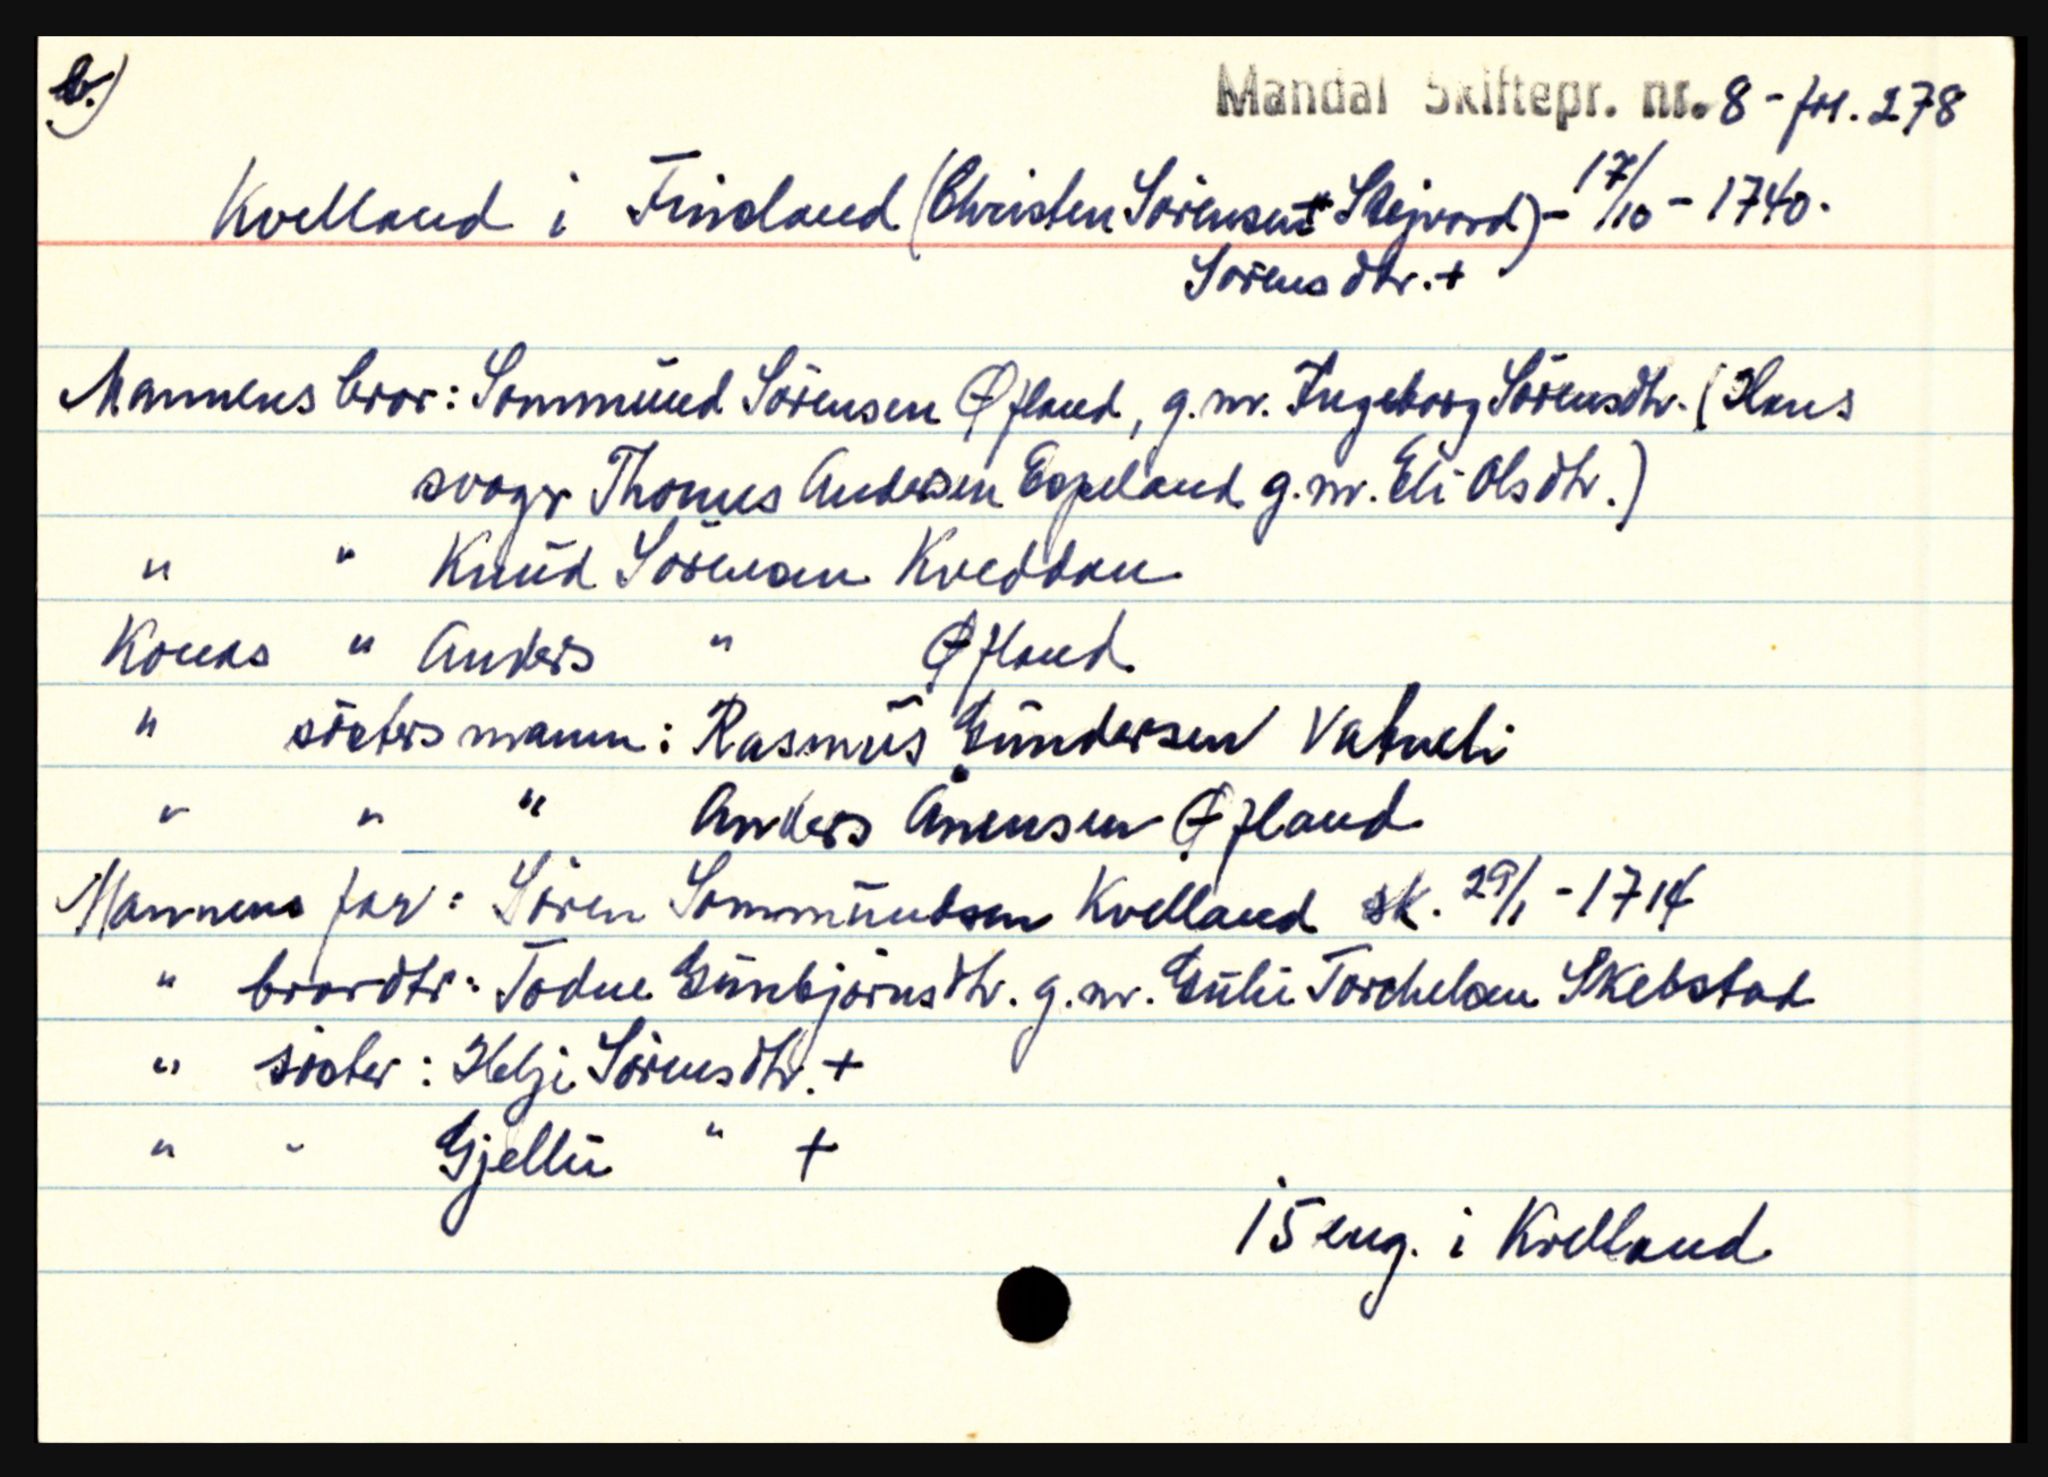 b.)
Mandal Skiftepr. nr. 8 - fol. 278
Kvelland i Finsland (Christen Sörensen + Skejvord) - 17/10 - 1740.
Sörensdtr. +
Mannens bror: Sommünd Sörensen Øfland, g.m. Ingeborg Sörensdtr. (Hans
svoger Thomas Andersen Espeland g.m. Eli Olsdtr.)
" " Knüd Sörensen Kveddan
Konas " Anders " Øfland
" sösters mann: Rasmüs Gündersen Vatneli
" " " Anders Ånensen Øfland
Mannens far: Sören Sommündsen Kvelland sk. 29/1 - 1714
" brordtr: Todne Günbjörnsdtr. g.m. Torchelsen Skebstad
" söster: Helje Sörensdtr. +
" " Gjellü " +
15 eng. i Kvelland